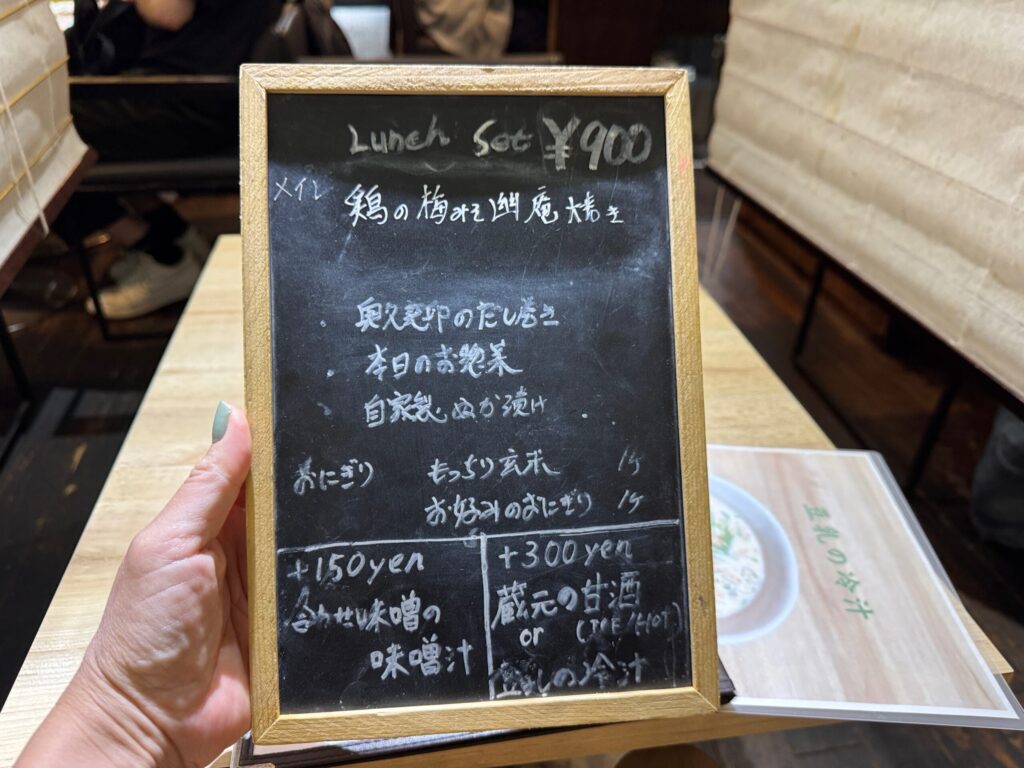 Lunch Set ¥900
メイン 鶏の梅みそ幽庵焼き
・奥久慈卵のだし巻き
・本日のお惣菜
自家製ぬか漬け
おにぎり もっちり玄米 1ケ
お好みのおにぎり 1ケ
+150yen
合わせ味噌の
味噌汁
+300yen
蔵元の甘酒
or (ICE/HOT)
豆乳の冷汁
豆乳の冷汁